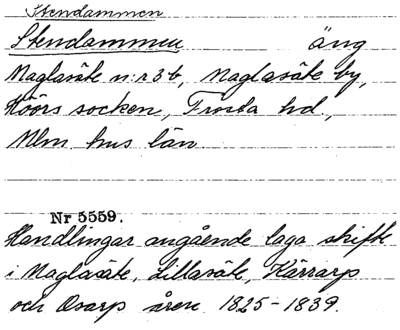 Stendammen
Stendammen äng
Maglasäte n:r 3 b, Maglasäte by,
Höörs socken, Frosta hd,
Mlm hus län
Nr 5559.
Handlingar angående laga skifte
i Maglasäte, Lillasäte, Kärrarp
och Osarp åren 1825-1839.